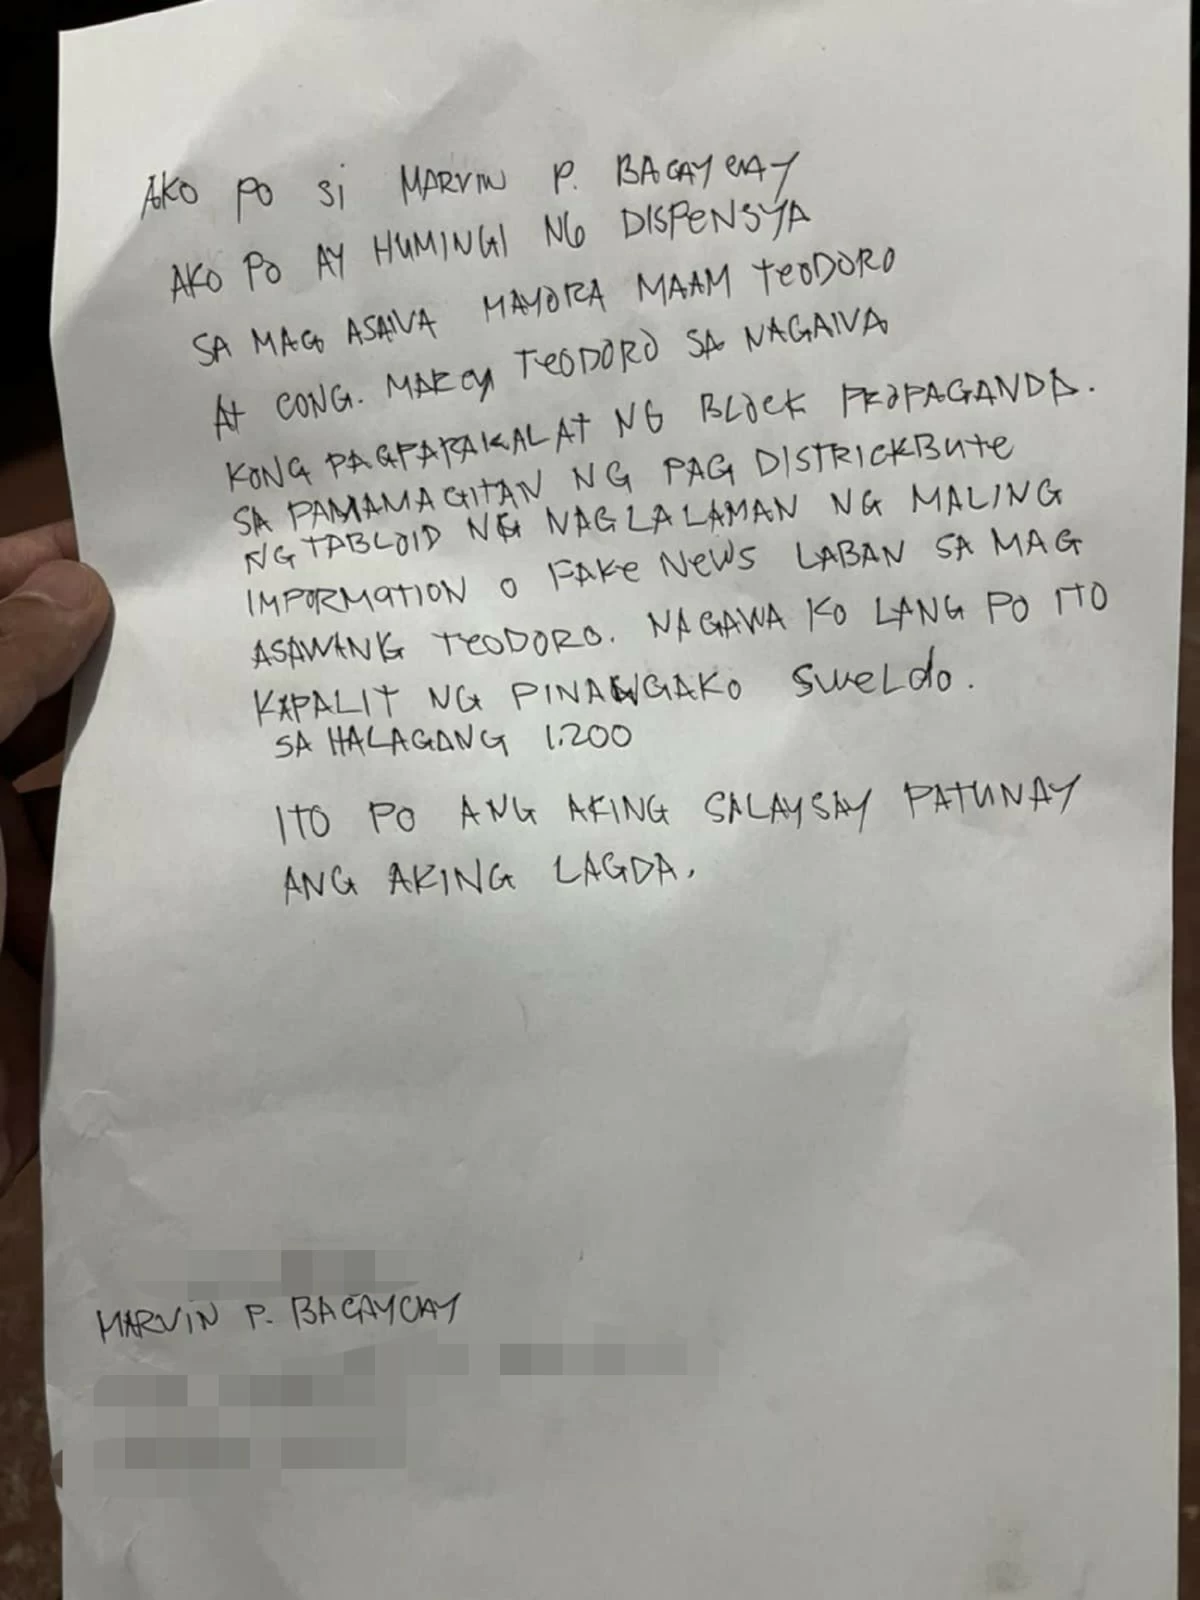 AKO PO SI MARVIN P. BAGAYCAY
AKO PO AY HUMINGI NG DISPENSYA
SA MAG ASAWA MAYORA MAAM TEODORO
At CONG. MARCY TEODORO SA NAGAWA
KONG PAGPAPAKALAT NG BLOCK PROPAGANDA.
SA PAMAMAGITAN NG PAG DISTRICKBUte
NG TABLOID NG NAGLALAMAN NG MALING
IMPORMATION O FAKe NEWS LABAN SA MAG
ASAWANG TEODORO. NAGAWA KO LANG PO ITO
KAPALIT NG PINANGAKO SWeLdo.
SA HALAGANG 1.200
ITO PO ANG AKING SALAYSAY PATUNAY
ANG AKING LAGDA.
MARVIN P. BAGAYCAY